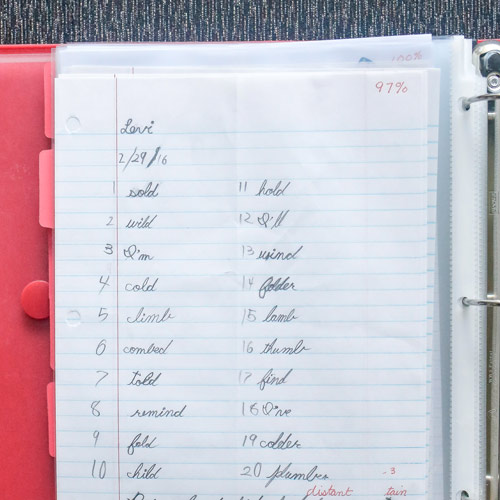 100%
97%
Levi
2/29/16
1 sold
2 wild
3 I'm
4 cold
5 climb
6 combed
7 told
8 remind
9 fold
10 child
11 hold
12 I'll
13 wind
14 folder
15 lamb
16 thumb
17 find
18 I've
19 colder
20 plumber
-3
distant tain